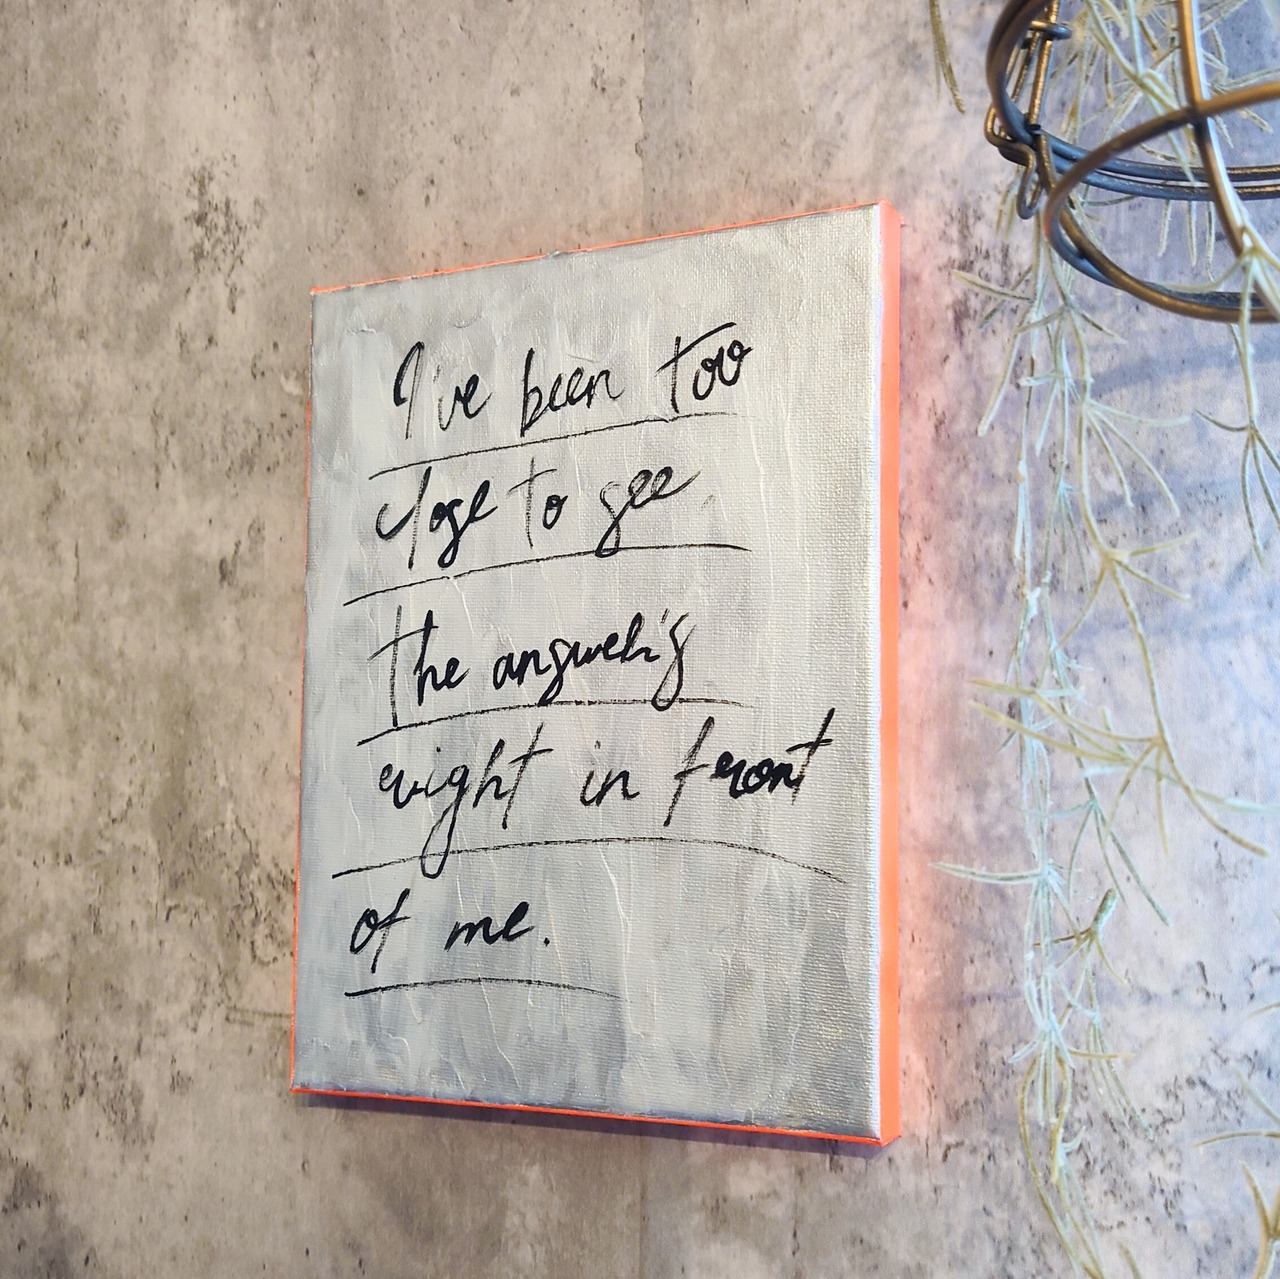 I've been too
close to see
the answer's
right in front
of me.